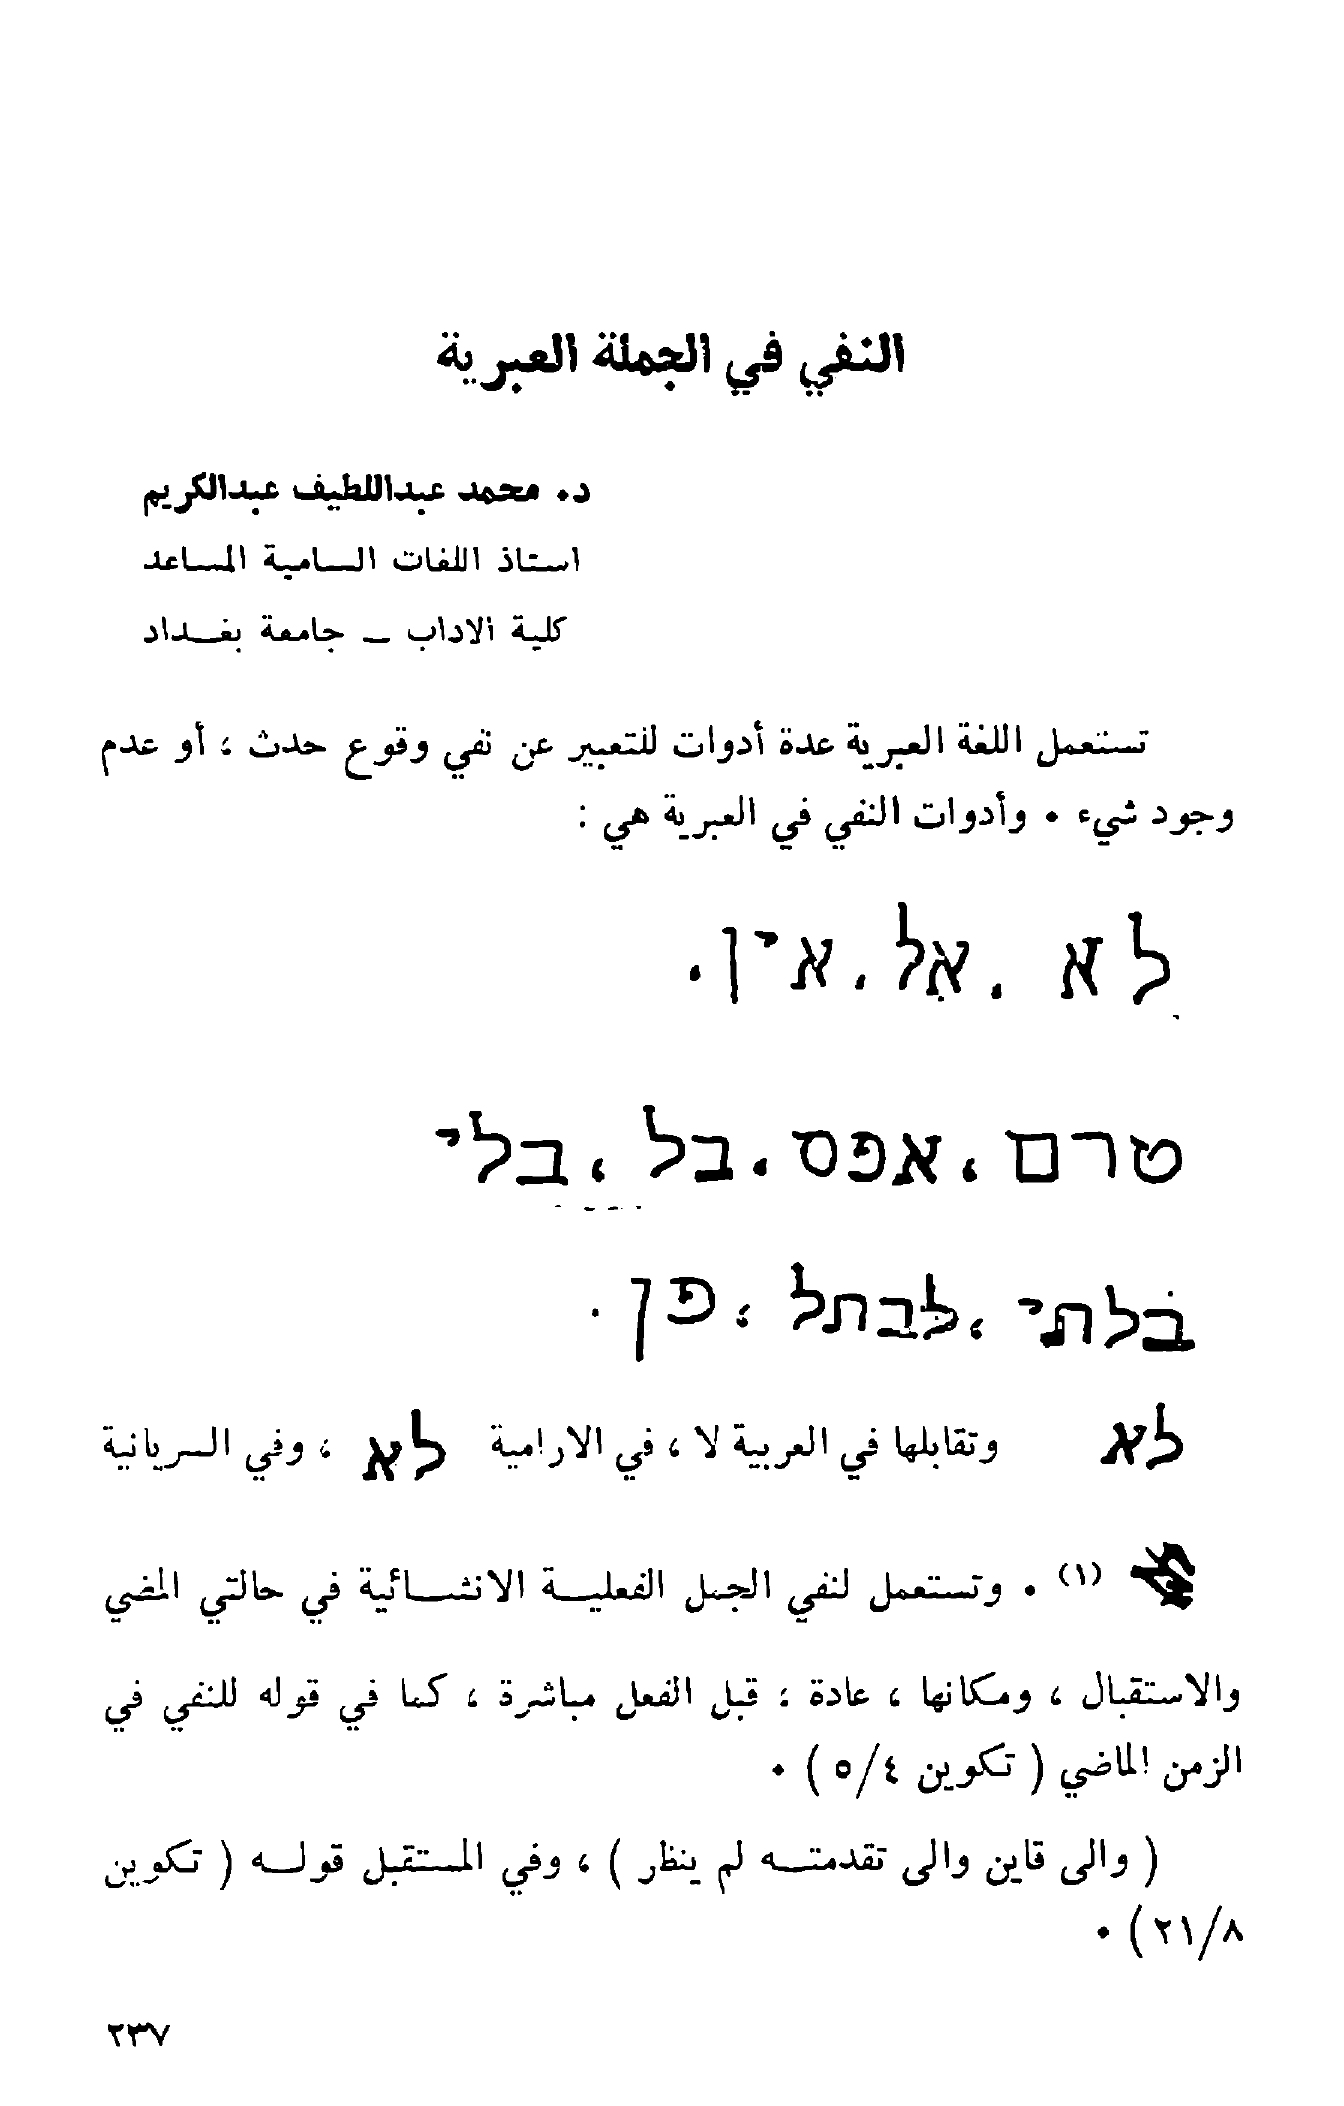 النفي في الجملة العبرية
د. محمد عبداللطيف عبدالكريم
استاذ اللغات السامية المساعد
كلية الاداب ـ جامعة بغداد
تستعمل اللغة العبرية عدة أدوات للتعبير عن نفي وقوع حدث ؛ أو عدم
وجود شيء . وأدوات النفي في العبرية هي :
לא ، אל ، אין .
טרם ، אפס ، בל ، בלי
בלתי ، לבתל ، פן .
לא وتقابلها في العربية لا ، في الارامية לא ، وفي السريانية
(١) . وتستعمل لنفي الجمل الفعلية الانشائية في حالتي المضي
والاستقبال ، ومكانها ، عادة : قبل الفعل مباشرة ، كما في قوله للنفي في
الزمن الماضي ( تكوين ٥/٤ ) .
( والى قاين والى تقدمته لم ينظر ) ، وفي المستقبل قوله ( تكوين
٢١/٨ ) .
٢٣٧